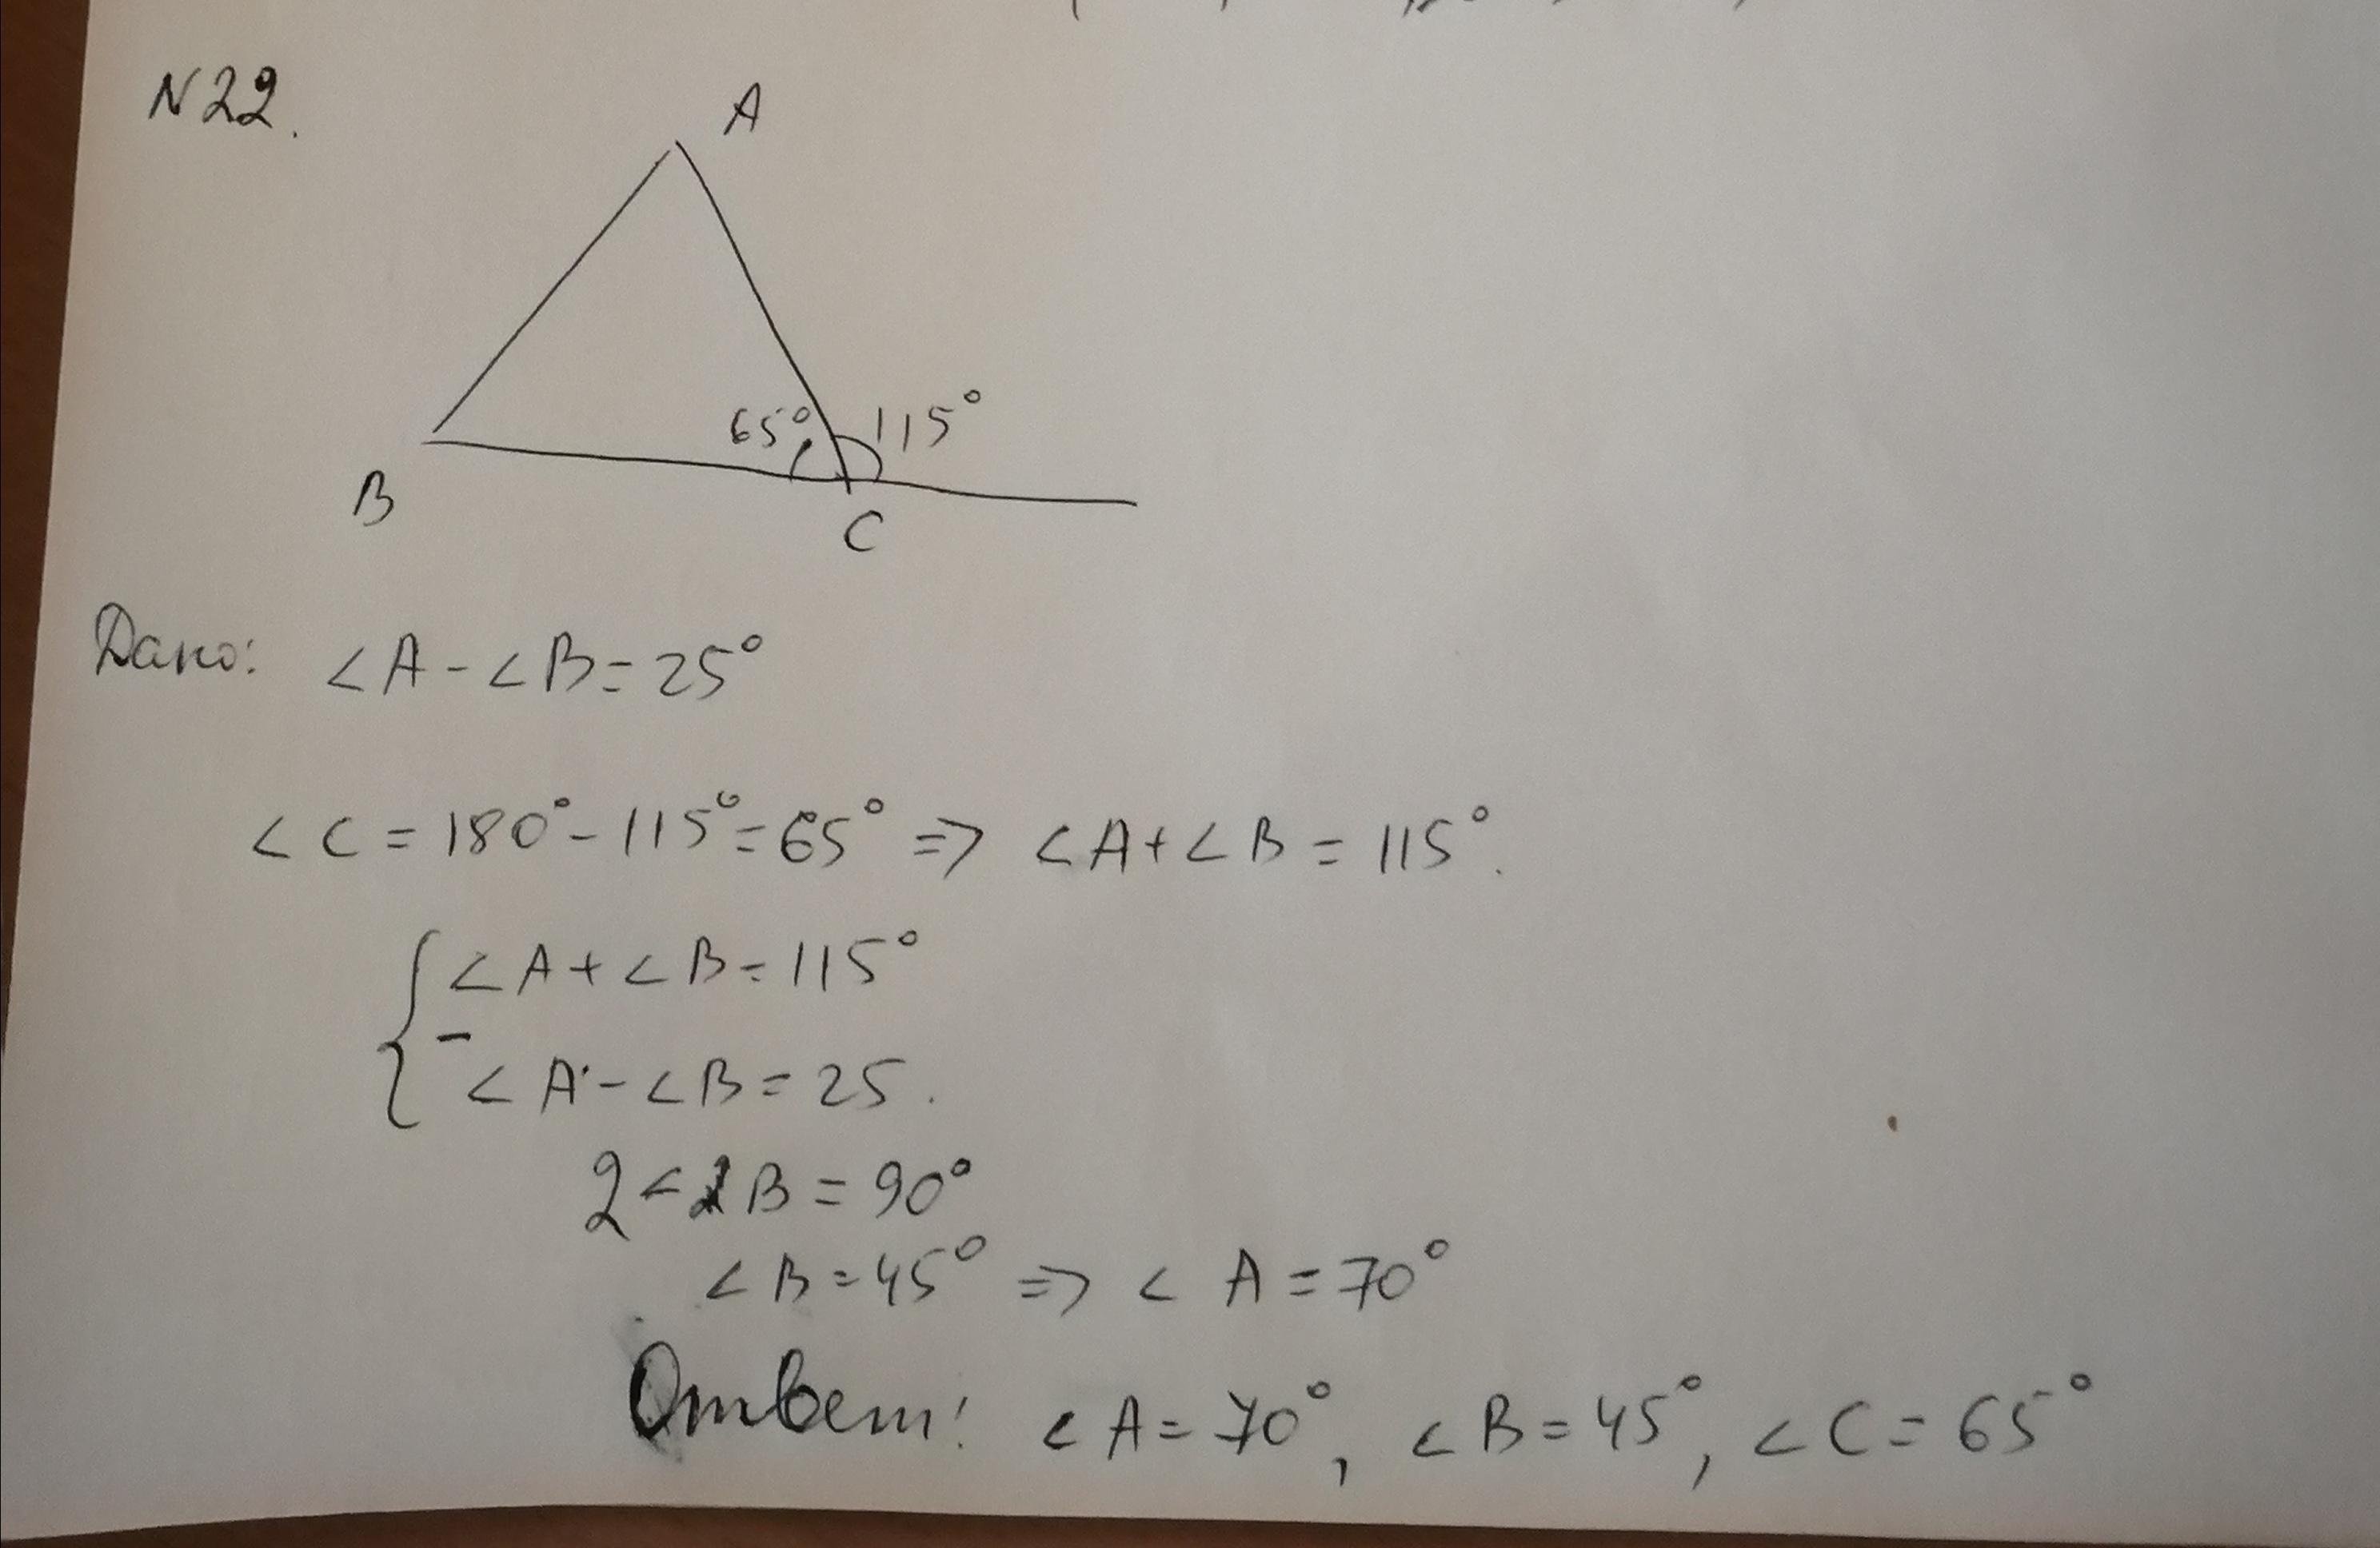 N22.
A
65° 115°
B
C
Дано: ∠A - ∠B = 25°
∠C = 180° - 115° = 65° => ∠A + ∠B = 115°.
∠A + ∠B = 115°
-
∠A - ∠B = 25.
2∠B = 90°
∠B = 45° => ∠A = 70°
Ответ: ∠A = 70°, ∠B = 45°, ∠C = 65°